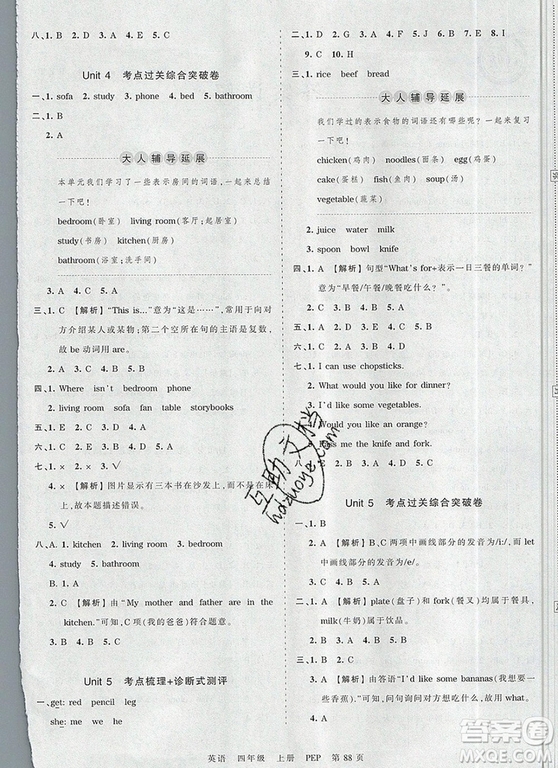 八、1. B 2. A 3. D 4. E 5. C
Unit 4 考点过关综合突破卷
一、1. sofa 2. study 3. phone 4. bed 5. bathroom
二、1. B
2. A
大人辅导延展
本单元我们学习了一些表示房间的词语,一起来总结
一下吧!
bedroom(卧室) living room(客厅;起居室)
study(书房) kitchen(厨房)
bathroom(浴室;洗手间)
3. A 4. A 5. C
三、1. C 【解析】"This is…"意为"这是……",常用于向对
方介绍某人或某物;第二个空所在句的主语是复数,
故 be 动词用 are。
2. B 3. B 4. A 5. B
四、1. Where isn't bedroom phone
2. living room sofa table storybooks
五、1. B 2. A 3. B 4. A 5. B
六、1. C 2. E 3. D 4. B 5. A
七、1. × 2. × 3. √
4. × 【解析】图片显示有三本书在沙发上,而不是在床
上,故本题描述错误。
5. √
八、A. 1. kitchen 2. living room 3. bathroom
4. study 5. bedroom
B. 1. A
2. C 【解析】由"My mother and father are in the
kitchen."可知,C项(我的爸爸)符合题意。
3. B 4. B 5. C
Unit 5 考点梳理+诊断式测评
一、get: red pencil leg
she: me we he
二、1. C 2. A 3. E 4. B 5. D
6. C 7. B 8. C 9. A 10. C
三、1. rice beef bread
大人辅导延展
我们学过的表示食物的词语还有哪些呢?一起来复
习一下吧!
chicken(鸡肉) noodles(面条) egg(鸡蛋)
cake(蛋糕) fish(鱼肉) soup(汤)
vegetable(蔬菜)
2. juice water milk
3. spoon bowl knife
四、1. A 【解析】句型"What's for+表示一日三餐的单词?"
意为"早餐/午餐/晚餐吃什么?"。
2. B 3. A 4. A 5. B
五、1. B 2. C 3. A 4. E 5. D
六、1. I can use chopsticks.
2. What would you like for dinner?
3. I'd like some vegetables.
4. Would you like an orange?
5. Pass me the knife and fork.
Unit 5 考点过关综合突破卷
一、1. B
2. A 【解析】B、C两项中画线部分的发音为/i/,let 中
画线部分的发音为/e/。
3. B 4. C 5. B
二、1. C 【解析】plate(盘子)和 fork(餐叉)均属于餐具,
milk(牛奶)属于饮品。
2. A 3. B 4. C 5. A
三、1. C 【解析】由答语"I'd like some bananas(我想要一
些香蕉)."可知,问句询问对方想要吃什么。
2. C 3. A 4. B
英语 四年级 上册 PEP 第 88 页
互助文档
hdzuoye.com
答案圈
MXQE.COM